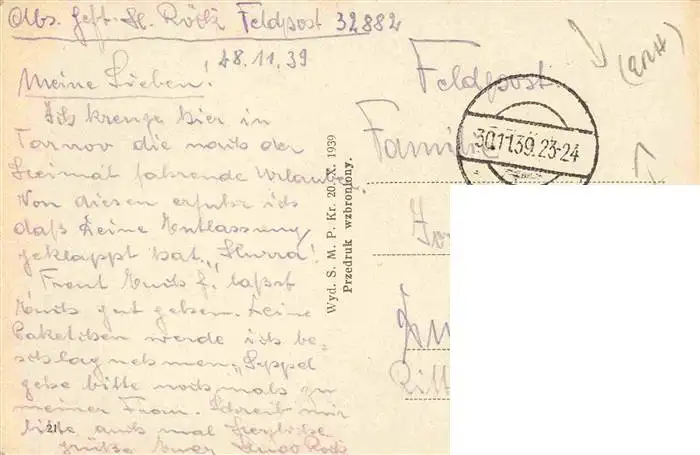 Abs. Gefr. H. Röck Feldpost 32882
28.11.39
Meine Lieben!
Ich kreuze hier in
Tarnov die nach der
Heimat fahrende Urlauber.
Von diesen erfuhr ich
daß Deine Entlassung
geklappt hat. „Hurra!"
Freut Euch &. laßt
Euch gut gehen. Deine
Paketchen werde ich be-
schlagnehmen, Seppel
gehe bitte nochmals zu
meiner Frau. Schreib mir
bitte auch mal. Herzliche
Grüße Euer Hugo Röck
21
Wyd. S. M. P. Kr. 20. IX. 1939
Przedruk wzbroniony.
Feldpost
30.11.39.23-24
Familie
Ritt